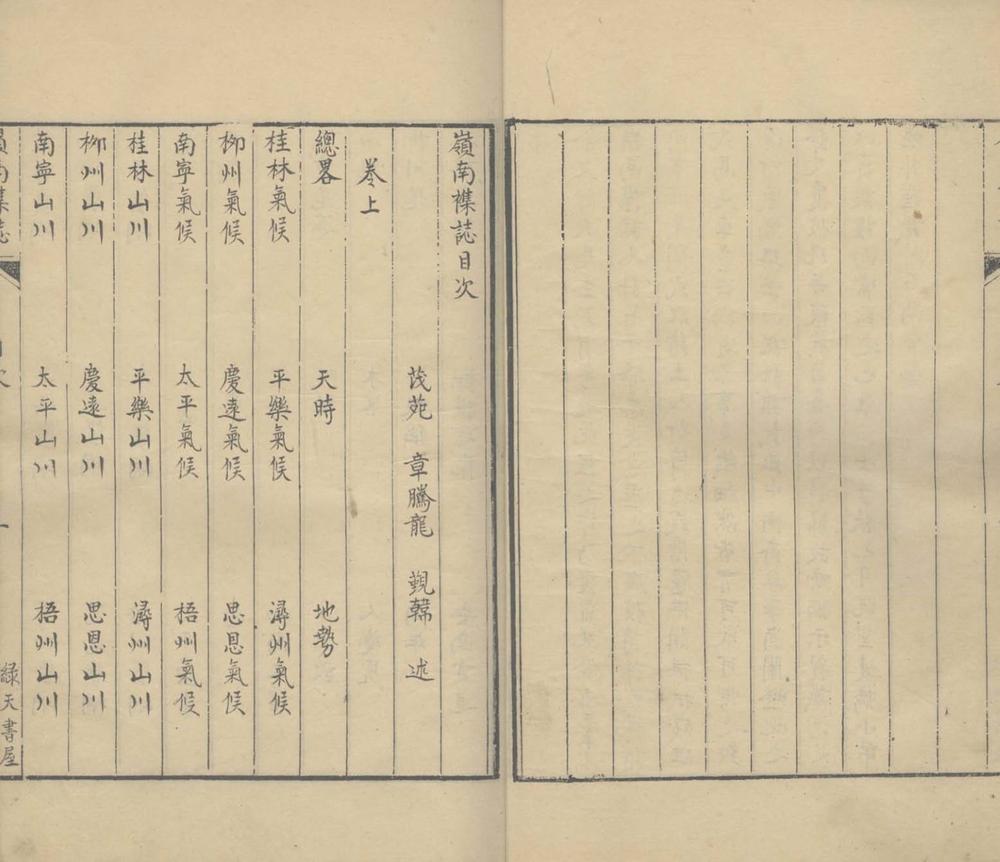 嶺南襍誌目次
茂苑 章騰龍 覲韓 述
卷上
總畧 天時 地勢
桂林氣候 平樂氣候 潯州氣候
柳州氣候 慶遠氣候 思恩氣候
南寧氣候 太平氣候 梧州氣候
桂林山川 平樂山川 潯州山川
柳州山川 慶遠山川 思恩山川
南寧山川 太平山川 梧州山川
嶺南襍誌 目次 一 綠天書屋